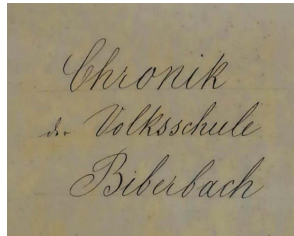 Chronik
der Volksschule
Biberbach